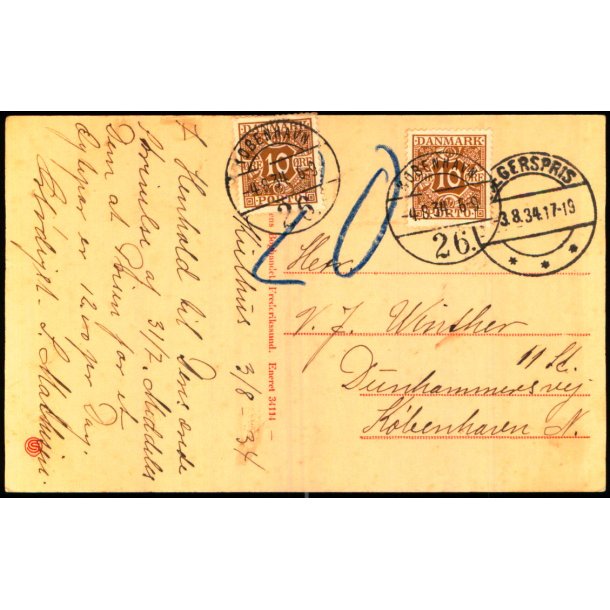 Kulhus 3/8 - 34
I Henhold til Deres ærede
Skrivelse af 31/7. Meddeles
Dem at Prisen for et
Dag er 12.00 pr Dag.
Ærbødigst.
Frederikssund. Eneret 34114
DANMARK
10 ØRE
PORTO
KØBENHAVN
-4.8.34.
26.
20
DANMARK
10
PORTO
KØBENHAVN
-4.8.34.
26.
JÆGERSPRIS
3.8.34.17-19
* * *
Herr
V. J. Winther
11 St.
Dunhammersvej
København N.